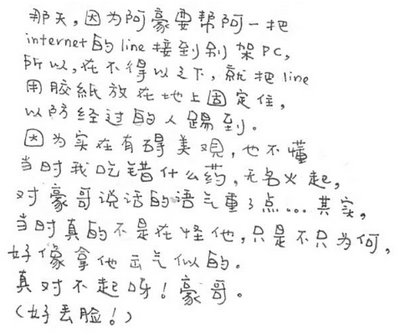 那天,因为阿豪要帮阿一把
internet的line接到别架PC,
所以,在不得以之下,就把line
用胶紙放在地上固定住,
以防经过的人踢到。
因为实在有碍美观,也不懂
当时我吃错什么药,无名火起,
对豪哥说话的语气重了点...其实,
当时真的不是在怪他,只是不只为何,
好像拿他出气似的。
真对不起呀!豪哥。
(好丢脸!)